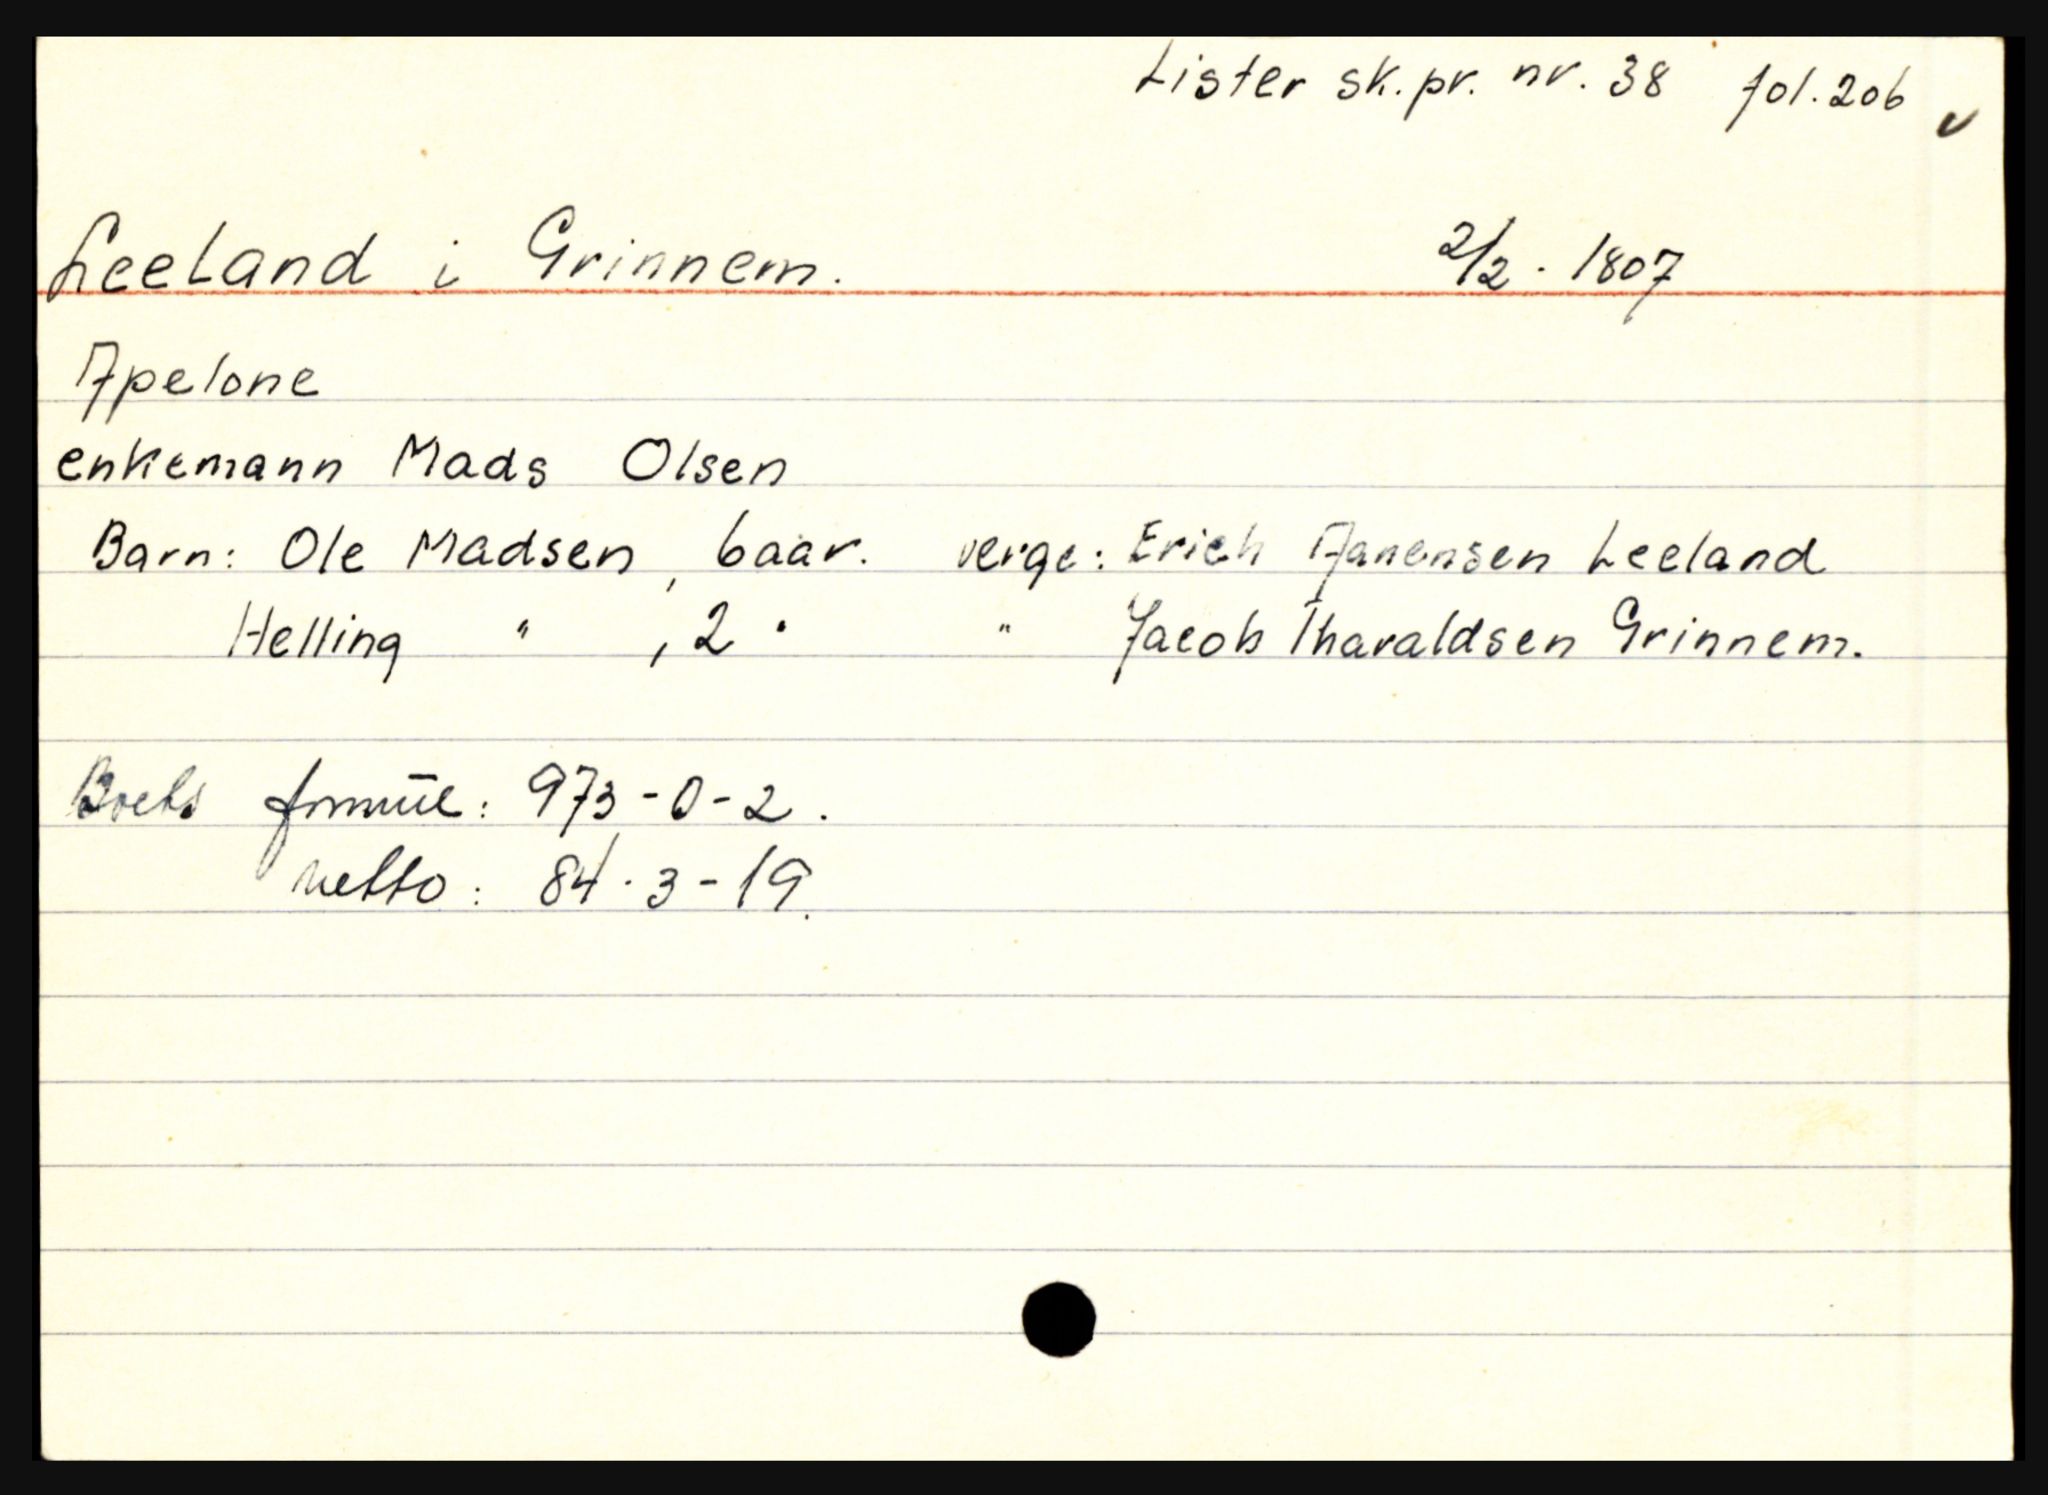 Lister sk.pr. nr. 38 fol. 206
Leeland i Grinnem. 2/2 - 1807
Apelone
enkemann Mads Olsen
Barn: Ole Madsen, 6 aar. verge: Erich Leeland
Helling " , 2 " " Jacob Tharaldsen Grinnem.
Boets formue: 973 - 0 - 2.
netto: 84 - 3 - 19.